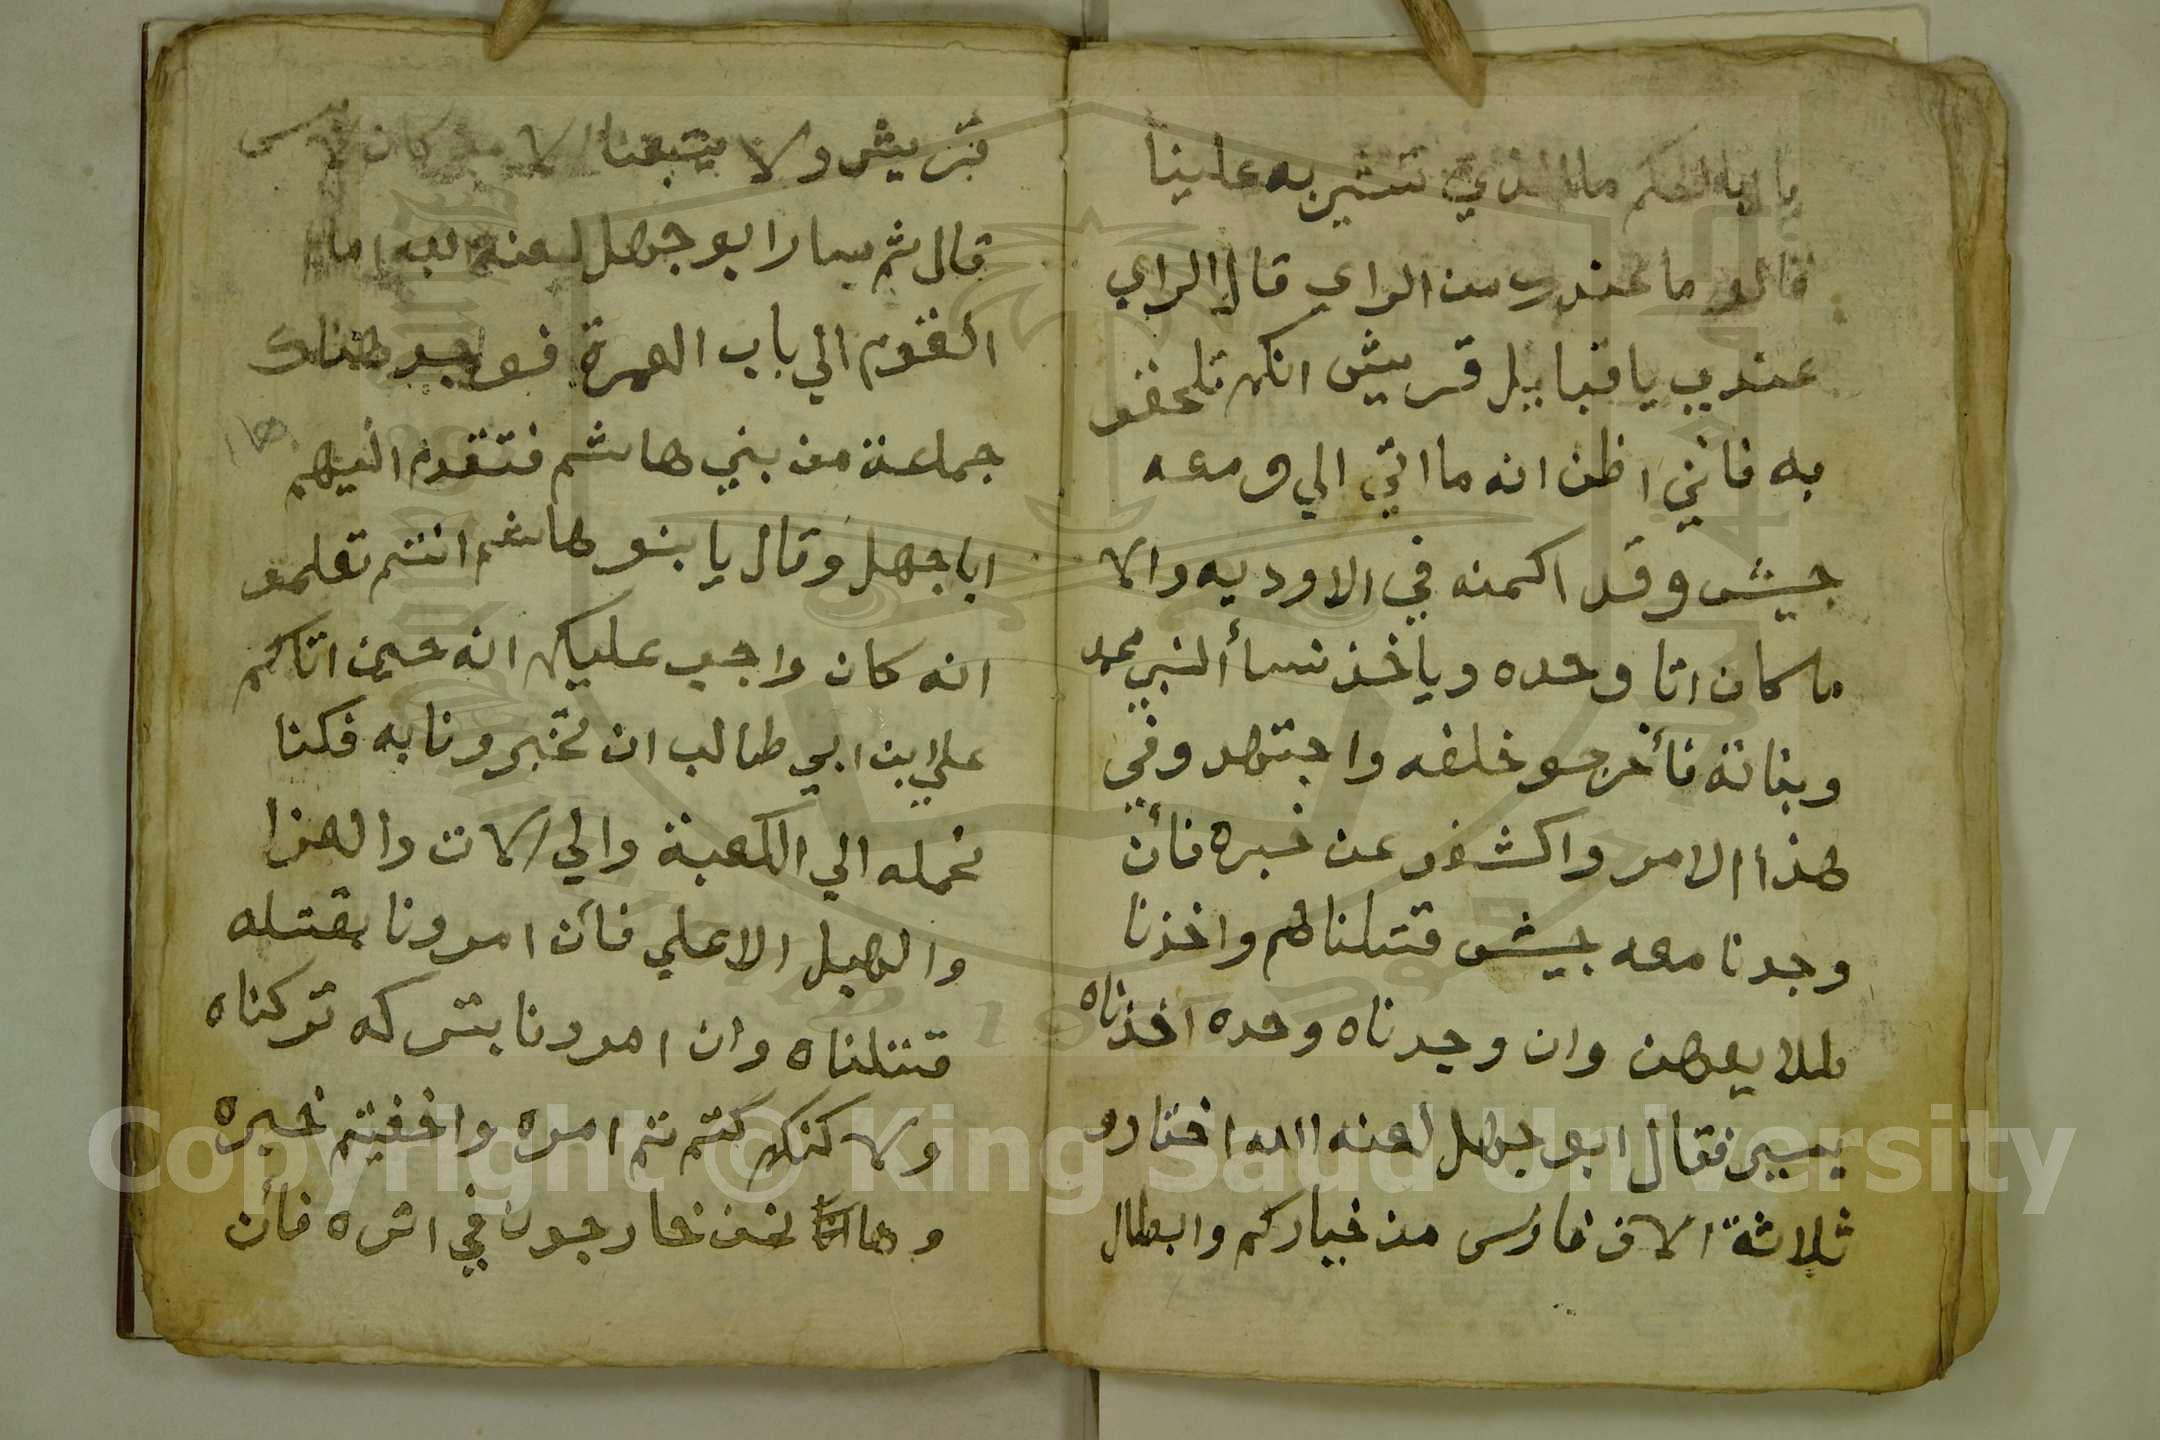 يا ابا الحكم ما الذي تشير به علينا
قالو ما عندك من الراي قال الراي
عندي يا قبايل قريش انكم تلحقو
به فانني اظن انه ما اتي الي ومعه
جيش وقد اكمنه في الاوديه والا
ما كان اتا وحده وياخذ نسأ النبي محمد
وبناته فأخرجو خلفه واجتهدو في
هذا الامر واكشفو عن خبره فأن
وجدنا معه جيش قتلناهم واخذنا
وان وجدناه وحده اخذناه
يسير فقال ابو جهل لعنه الله اختارو
ثلاثة الاف فارس من خياركم وابطال
قريش ولا يتبعنا الا من كان
قال ثم سار ابو جهل لعنه الله اما
القوم الي باب العمرة فوجد هناك
جماعة من بني هاشم فتقدم اليهم
ابا جهل وقال يا بنو هاشم انتم تعلمو
انه كان واجب عليكم انه حين اتاكم
علي ابن ابي طالب ان تخبرونا به فكنا
نحمله الي الكعبة والي الات والعزا
والهبل الاعلي فأن امرونا بقتله
قتلناه وان امرونا بتركه تركناه
ولا كنكم كتمتم امره واخفيتم خبره
وها نحن خارجون في اثره فأن
Copyright © King Saud University